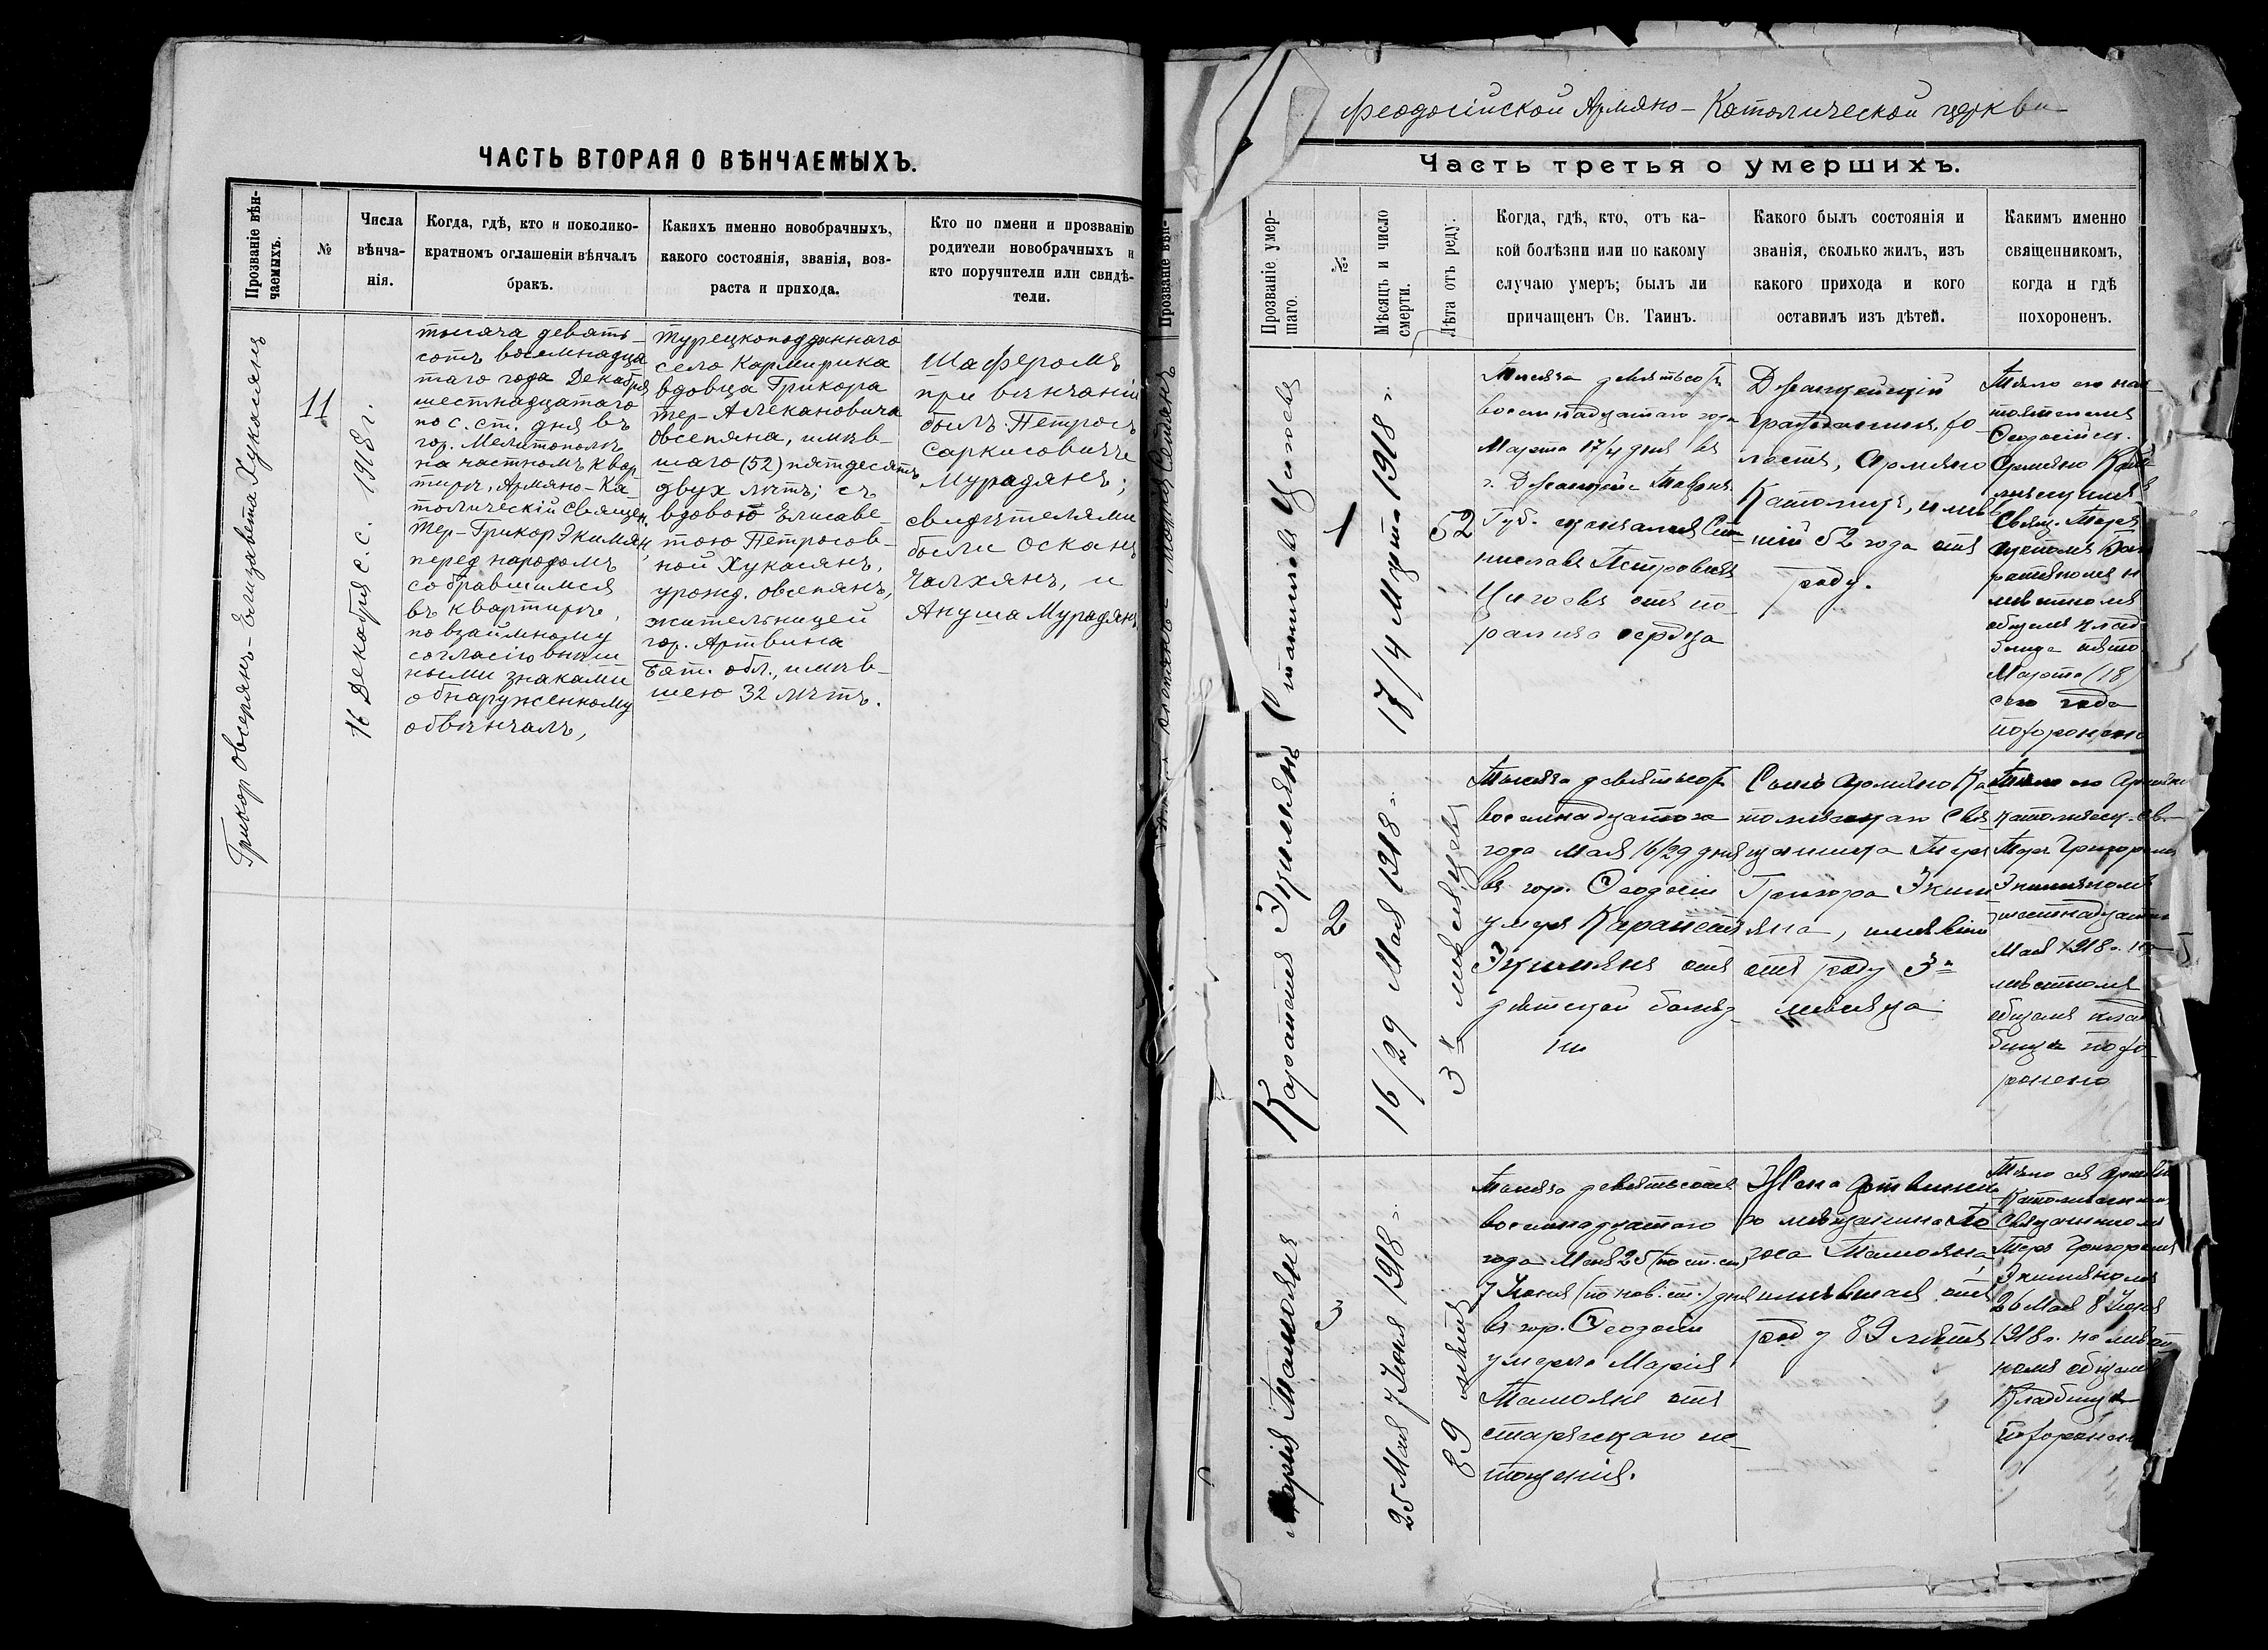 ЧАСТЬ ВТОРАЯ О ВѢНЧАЕМЫХЪ.
Прозваніе вѣн-
чаемыхъ.
№
Числа
вѣнча-
нія.
Когда, гдѣ, кто и поколико-
кратномъ оглашеніи вѣнчалъ
бракъ.
Какихъ именно новобрачныхъ,
какого состоянія, званія, воз-
раста и прихода.
Кто по имени и прозванію
родители новобрачныхъ и
кто поручители или свидѣ-
тели.
Грикор Овсепянъ - Елизавета Хукасянъ
11
16 Декабря с.с. 1918 г.
тысяча девять-
сотъ восемнадца
таго года Декабря
шестнадцатаго
по с. ст. дня въ
гор. Мелитополѣ
на частномъ квар
тирѣ, Армяно-Ка-
толическій Священ.
Тер-Грикор Экимян
перед народомъ
собравшимся
въ квартирѣ,
по взаимному
согласію внѣш
ными знаками
обнаруженному
обвѣнчалъ,
турецкоподданнаго
село Кармирика
вдовца Грикора
Тер-Алекановича
Овсепяна, имѣв-
шаго (52) пятдесятъ
двух лѣтъ; съ
вдовою Елисаве-
тою Петросов-
ной Хукасянъ,
урожд. Овсепянъ,
жительницей
гор. Артвина
Бат. обл., имѣв-
шею 32 лѣтъ.
Шаферомъ
при вѣнчаніи
былъ Петросъ
Саркисовичъ
Мурадянъ;
свидѣтелями
были Осканъ
Чалхянъ, и
Ануша Мурадянъ
Прозваніе вѣн-
Феодосійской Армяно-Католической церкви
Часть третья о умершихъ.
Прозваніе умер-
шаго.
№
Мѣсяцъ и число
смерти.
Лѣта отъ роду.
Когда, гдѣ, кто, отъ ка-
кой болѣзни или по какому
случаю умеръ; былъ ли
причащенъ Св. Таинъ.
Какого былъ состоянія и
званія, сколько жилъ, изъ
какого прихода и кого
оставилъ изъ дѣтей.
Какимъ именно
священникомъ,
когда и гдѣ
похороненъ.
1
17/4 Марта 1918 г.
52
Тысяча девятьсотъ
восемнадцатаго года
Марта 17/4 дня въ
г. Таврич.
Губ. скончался Ста-
ниславъ Петровичъ
отъ по-
ралича сердца
гражданинъ, хо-
лостъ, Армяно
Католикъ, имѣв
шій 52 года отъ
роду.
Тѣло его нас-
тоятелемъ
Ѳеодосійск.
Армяно Като
лическимъ
Свящ.
мѣстномъ
общемъ клад-
бищѣ пято
Марта (18)
сего года
похоронено
Карапетъ Экимянъ
2
16/29 Мая 1918 г.
3х мѣсяцевъ
Тысяча девятьсотъ
восемнадцатаго
года Мая 16/29 дня
въ гор. Ѳеодосіи
умеръ Карапетъ
Экимянъ отъ
дѣтской болѣз-
ни
Сынъ Армяно Ка
толическаго Свя
щенника Теръ
Григора Эким
яна, имѣвшій
отъ роду 3х
мѣсяца
Тѣло его Армяно
католическ. св.
Теръ Григоромъ
Экимяномъ
шестнадцатаго
Мая 1918 г. на
мѣстномъ
общемъ клад
бищѣ похо-
ронено
Марія Тамоянъ
3
25 Мая 7 Іюня 1918 г.
89 лѣтъ
Тысяча девятьсотъ
восемнадцатаго
года Мая 25 (по ст. ст.)
7 Іюня (по нов. ст.) дня
въ гор. Ѳеодосіи
умерла Марія
Тамоянъ отъ
старческаго ис-
тощенія.
Жена Артвинска
го мѣщанина По
госа Тамояна,
имѣвшая отъ
роду 89 лѣтъ
Тѣло ея Армяно
Католическимъ
Священникомъ
Теръ Григоромъ
Экимяномъ
26 Мая 8 Іюня
1918 г. на мѣст
номъ общемъ
Кладбищѣ
похоронено